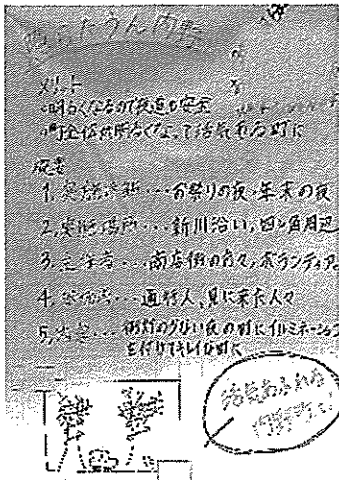 メリット
・明るくなるので夜道も安全
・町全体が明るくなって活気ある町に
概要
1, 実施時期・・・お祭りの夜・年末の夜
2, 実施場所・・・新川沿い, 四ッ角周辺
3, 主催者・・・商店街の方々, ボランティア
4, 参加者・・・通行人, 見に来た人々
5, 内容・・・街灯の少ない夜の町にイルミネーション
を付けてキレイな町に
活気あふれる
内野町に!